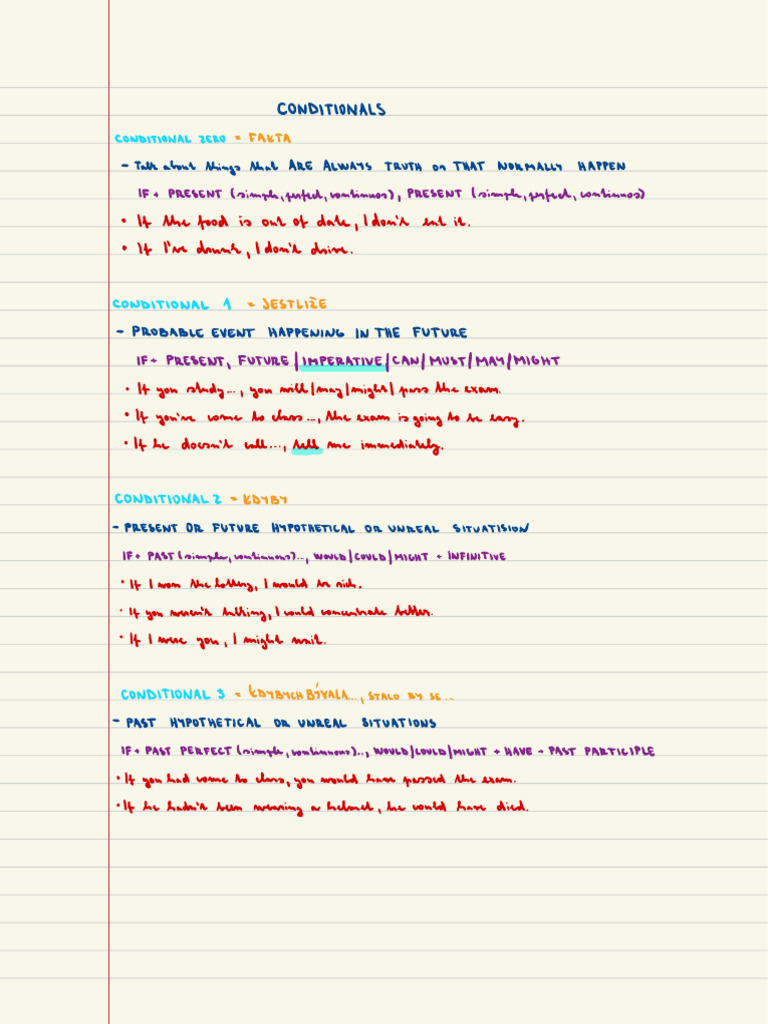 CONDITIONALS
CONDITIONAL ZERO = FAKTA
- Talk about things that ARE ALWAYS TRUTH or THAT NORMALLY HAPPEN
IF + PRESENT (simple, perfect, continuos), PRESENT (simple, perfect, continuos)
• If the food is out of date, I don't eat it.
• If I've drunk, I don't drive.
CONDITIONAL 1 = JESTLIŽE
- PROBABLE EVENT HAPPENING IN THE FUTURE
IF + PRESENT, FUTURE / IMPERATIVE / CAN/MUST/MAY/MIGHT
• If you study..., you will/may/might/ pass the exam.
• If you've come to class..., the exam is going to be easy.
• If he doesn't call..., tell me immediately.
CONDITIONAL 2 = KDYBY
- PRESENT OR FUTURE HYPOTHETICAL OR UNREAL SITUATISION
IF + PAST (simple, continuous)..., WOULD/COULD/MIGHT + INFINITIVE
• If I won the lottery, I would be rich.
• If you weren't talking, I could concentrate better.
• If I were you, I might wait.
CONDITIONAL 3 = KDYBYCH BÝVALA..., STALO BY SE...
- PAST HYPOTHETICAL OR UNREAL SITUATIONS
IF + PAST PERFECT (simple, continuous)..., WOULD/COULD/MIGHT + HAVE + PAST PARTICIPLE
• If you had come to class, you would have passed the exam.
• If he hadn't been wearing a helmet, he could have died.